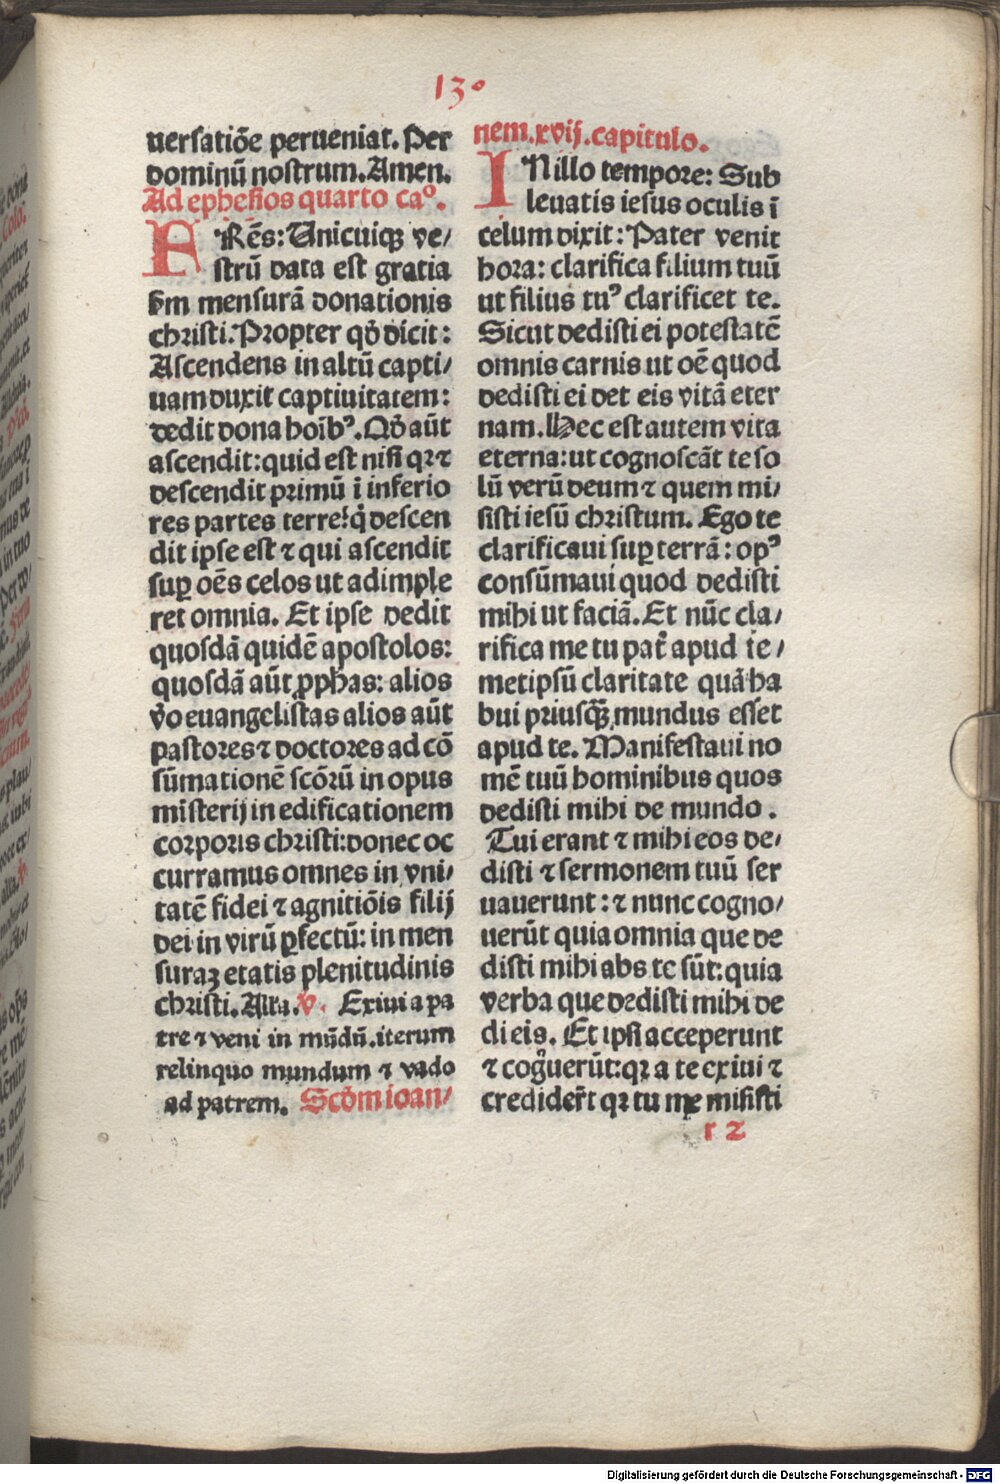 130
uersatiõe perueniat. Per
dominũ nostrum. Amen.
Ad ephesios quarto caº.
FRẽs: Unicuiqꝫ ve/
strũ data est gratia
ẜm mensurã donationis
christi. Propter qḋ dicit:
Ascendens in altũ capti/
uam duxit captiuitatem:
dedit dona hoĩbꝰ. Qḋ aũt
ascendit: quid est nisi qꝛ ⁊
descendit primũ ĩ inferio
res partes terre: q̇ descen
dit ipse est ⁊ qui ascendit
suꝑ oẽs celos ut adimple
ret omnia. Et ipse dedit
quosdã quidẽ apostolos:
quosdã aũt ꝓphas: alios
v̊o euangelistas alios aũt
pastores ⁊ doctores ad cõ
sũmationẽ scõrũ in opus
misterij in edificationem
corporis christi: donec oc
curramus omnes in vni/
tatẽ fidei ⁊ agnitiõis filij
dei in virũ ꝑfectũ: in men
suraꝫ etatis plenitudinis
christi. Alla. v. Exiui a pa
tre ⁊ veni in mũdũ. iterum
relinquo mundum ⁊ vado
ad patrem. Scḋm ioan/
nem. xvij. capitulo.
IN illo tempore: Sub
leuatis iesus oculis ĩ
celum dixit: Pater venit
hora: clarifica filium tuũ
ut filius tuꝰ clarificet te.
Sicut dedisti ei potestatẽ
omnis carnis ut oẽ quod
dedisti ei det eis vitã eter
nam. Hec est autem vita
eterna: ut cognoscãt te so
lũ verũ deum ⁊ quem mi/
sisti iesũ christum. Ego te
clarificaui suꝑ terrã: opꝰ
consũmaui quod dedisti
mihi ut faciã. Et nũc cla/
rifica me tu pat̃ apud te/
metipsũ claritate quã ha
bui priusqꝫ̃ mundus esset
apud te. Manifestaui no
mẽ tuũ hominibus quos
dedisti mihi de mundo.
Tui erant ⁊ mihi eos de/
disti ⁊ sermonem tuũ ser
uauerunt: ⁊ nunc cogno/
uerũt quia omnia que de
disti mihi abs te sũt: quia
verba que dedisti mihi de
di eis. Et ipsi acceperunt
⁊ cog̃uerũt: qꝛ a te exiui ⁊
credider̃t qꝛ tu me misisti
r 2
Digitalisierung gefördert durch die Deutsche Forschungsgemeinschaft - DFG